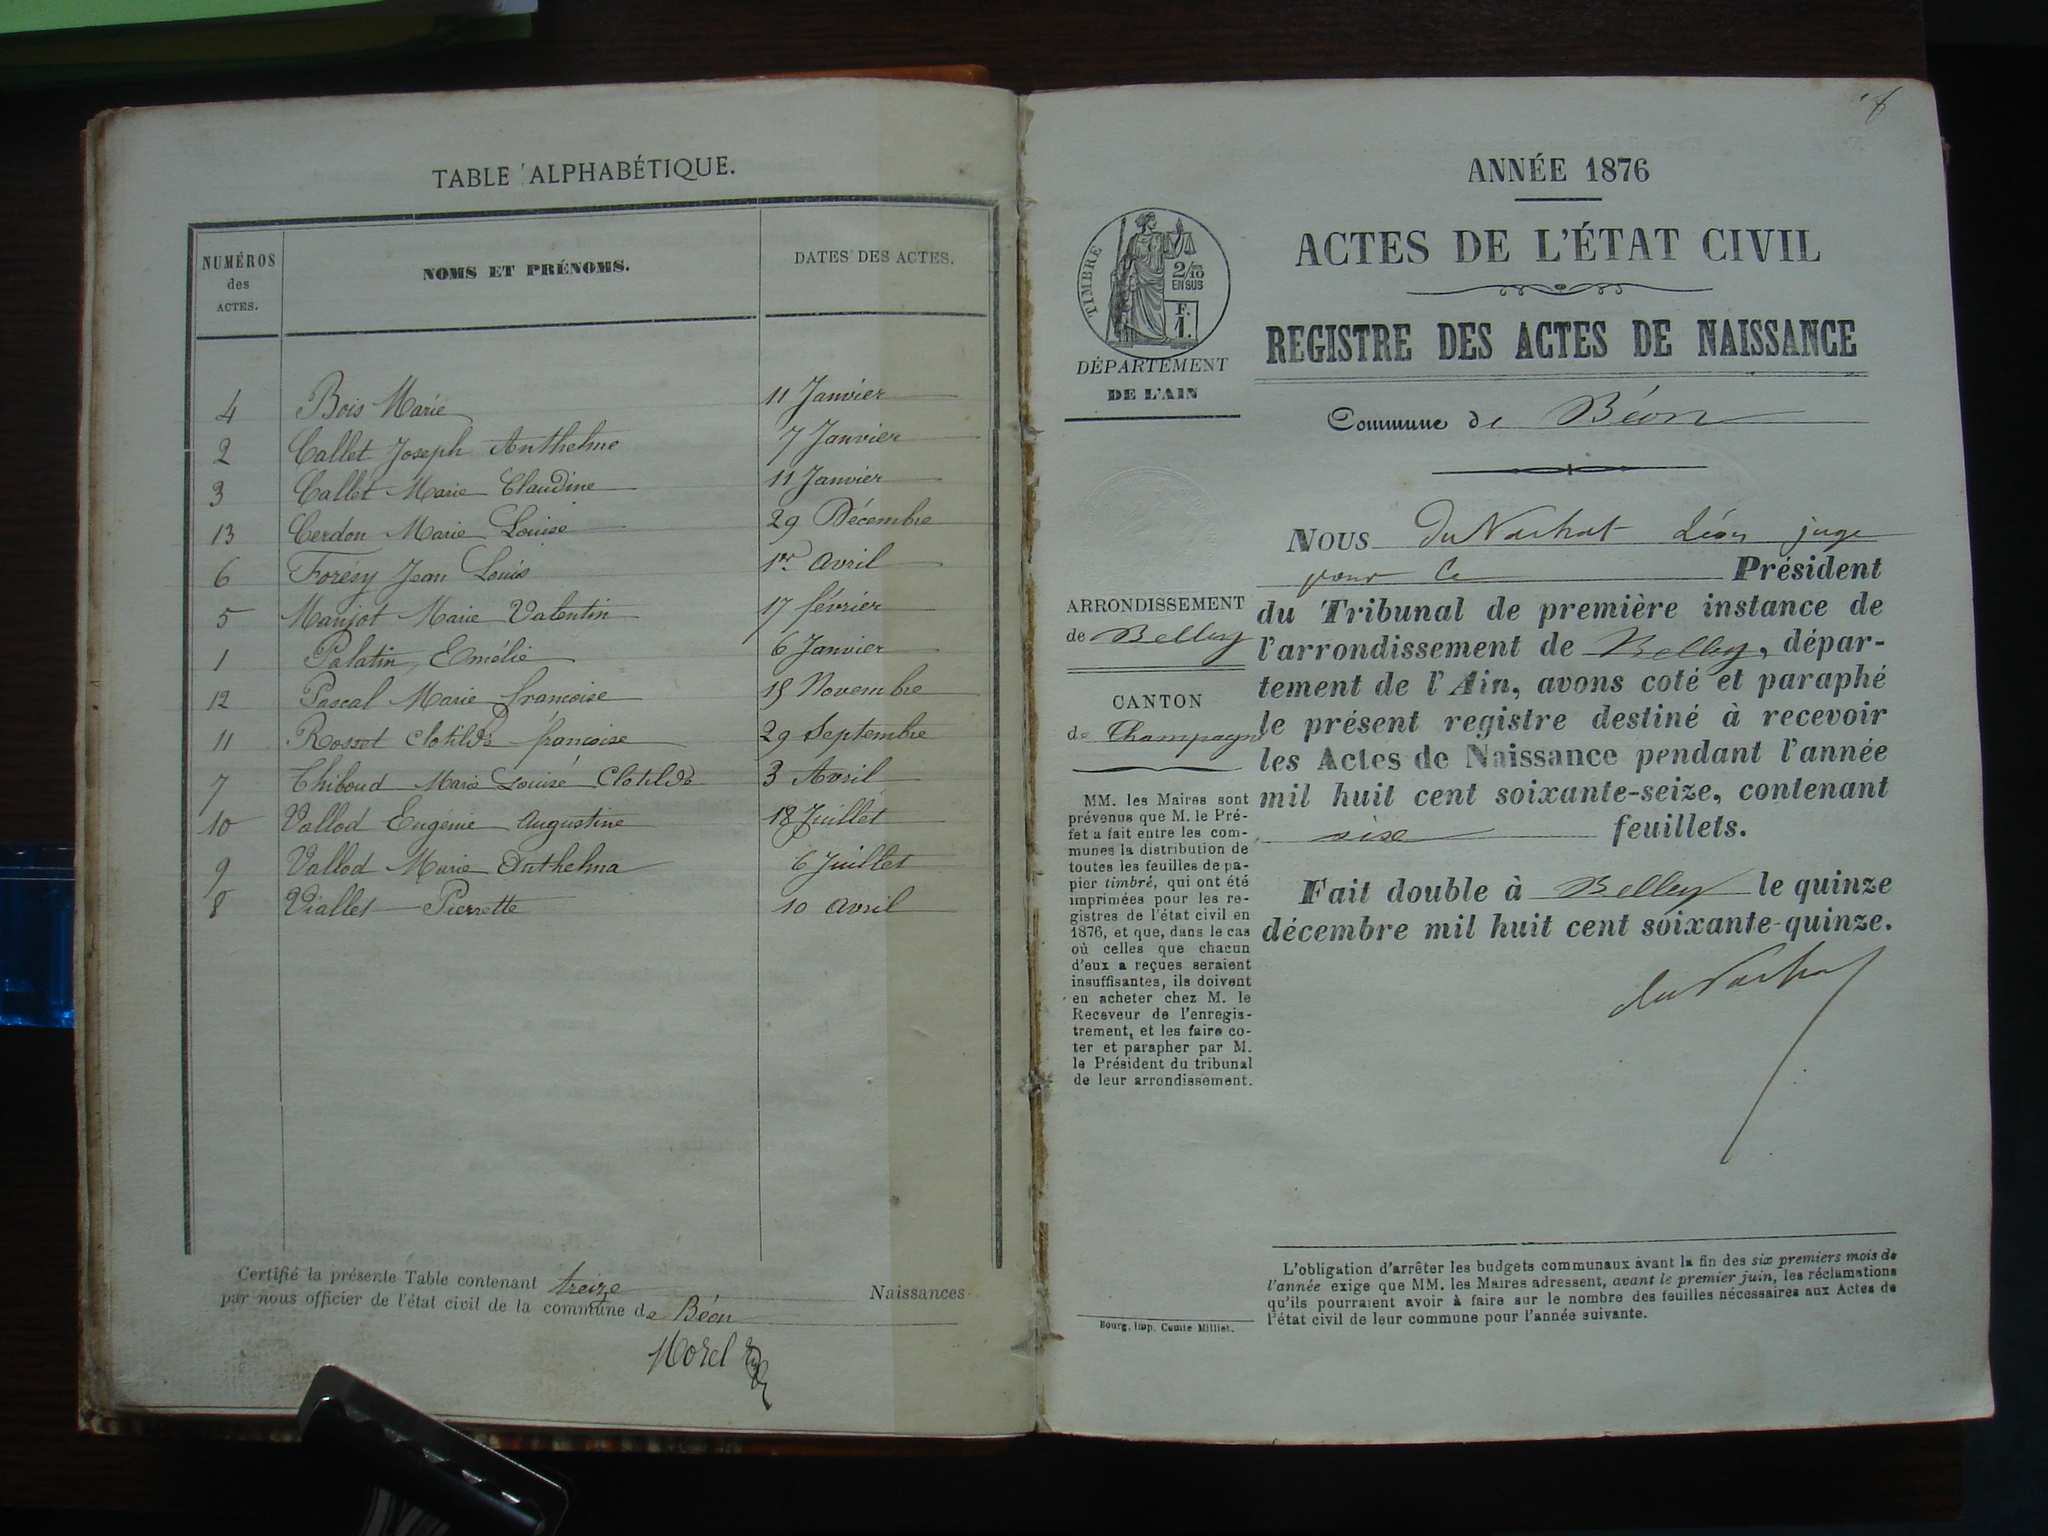 TABLE ALPHABÉTIQUE.
NUMÉROS
des
ACTES.
NOMS ET PRÉNOMS.
DATES DES ACTES.
4 Bois Marie 11 Janvier
2 Callet Joseph Anthelme 7 Janvier
3 Callet Marie Claudine 11 Janvier
13 Cerdon Marie Louise 29 Décembre
6 Forésy Jean Louis 1er Avril
5 Manjot Marie Valentin 17 février
1 Palatin Emélie 6 Janvier
12 Pascal Marie françoise 15 Novembre
11 Rosset Clotilde françoise 29 Septembre
7 Thiboud Marie Louise Clotilde 3 Avril
10 Vallod Eugénie Augustine 18 Juillet
9 Vallod Marie Anthelma 6 Juillet
8 Viallet Pierrette 10 Avril
Certifié la présente Table contenant treize Naissances
par nous officier de l'état civil de la commune de Béon
Morel
ANNÉE 1876
ACTES DE L'ÉTAT CIVIL
REGISTRE DES ACTES DE NAISSANCE
TIMBRE
2/10
EN SUS
F.
1.
DÉPARTEMENT
DE L'AIN
Commune de Béon
ARRONDISSEMENT
de Belley
CANTON
de Champagne
MM. les Maires sont
prévenus que M. le Pré-
fet a fait entre les com-
munes la distribution de
toutes les feuilles de pa-
pier timbré, qui ont été
imprimées pour les re-
gistres de l'état civil en
1876, et que, dans le cas
où celles que chacun
d'eux a reçues seraient
insuffisantes, ils doivent
en acheter chez M. le
Receveur de l'enregis-
trement, et les faire co-
ter et parapher par M.
le Président du tribunal
de leur arrondissement.
Bourg, Imp. Comte Milliet.
NOUS du Nachat Léon juge
pour le Président
du Tribunal de première instance de
l'arrondissement de Belley, dépar-
tement de l'Ain, avons coté et paraphé
le présent registre destiné à recevoir
les Actes de Naissance pendant l'année
mil huit cent soixante-seize, contenant
six feuillets.
Fait double à Belley le quinze
décembre mil huit cent soixante-quinze.
du Nachat
L'obligation d'arrêter les budgets communaux avant la fin des six premiers mois de
l'année exige que MM. les Maires adressent, avant le premier juin, les réclamations
qu'ils pourraient avoir à faire sur le nombre des feuilles nécessaires aux Actes de
l'état civil de leur commune pour l'année suivante.